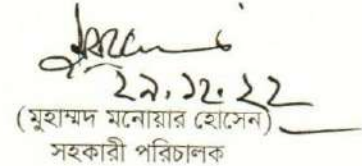 ২৯.১২.২২
(মুহাম্মদ মনোয়ার হোসেন)
সহকারী পরিচালক